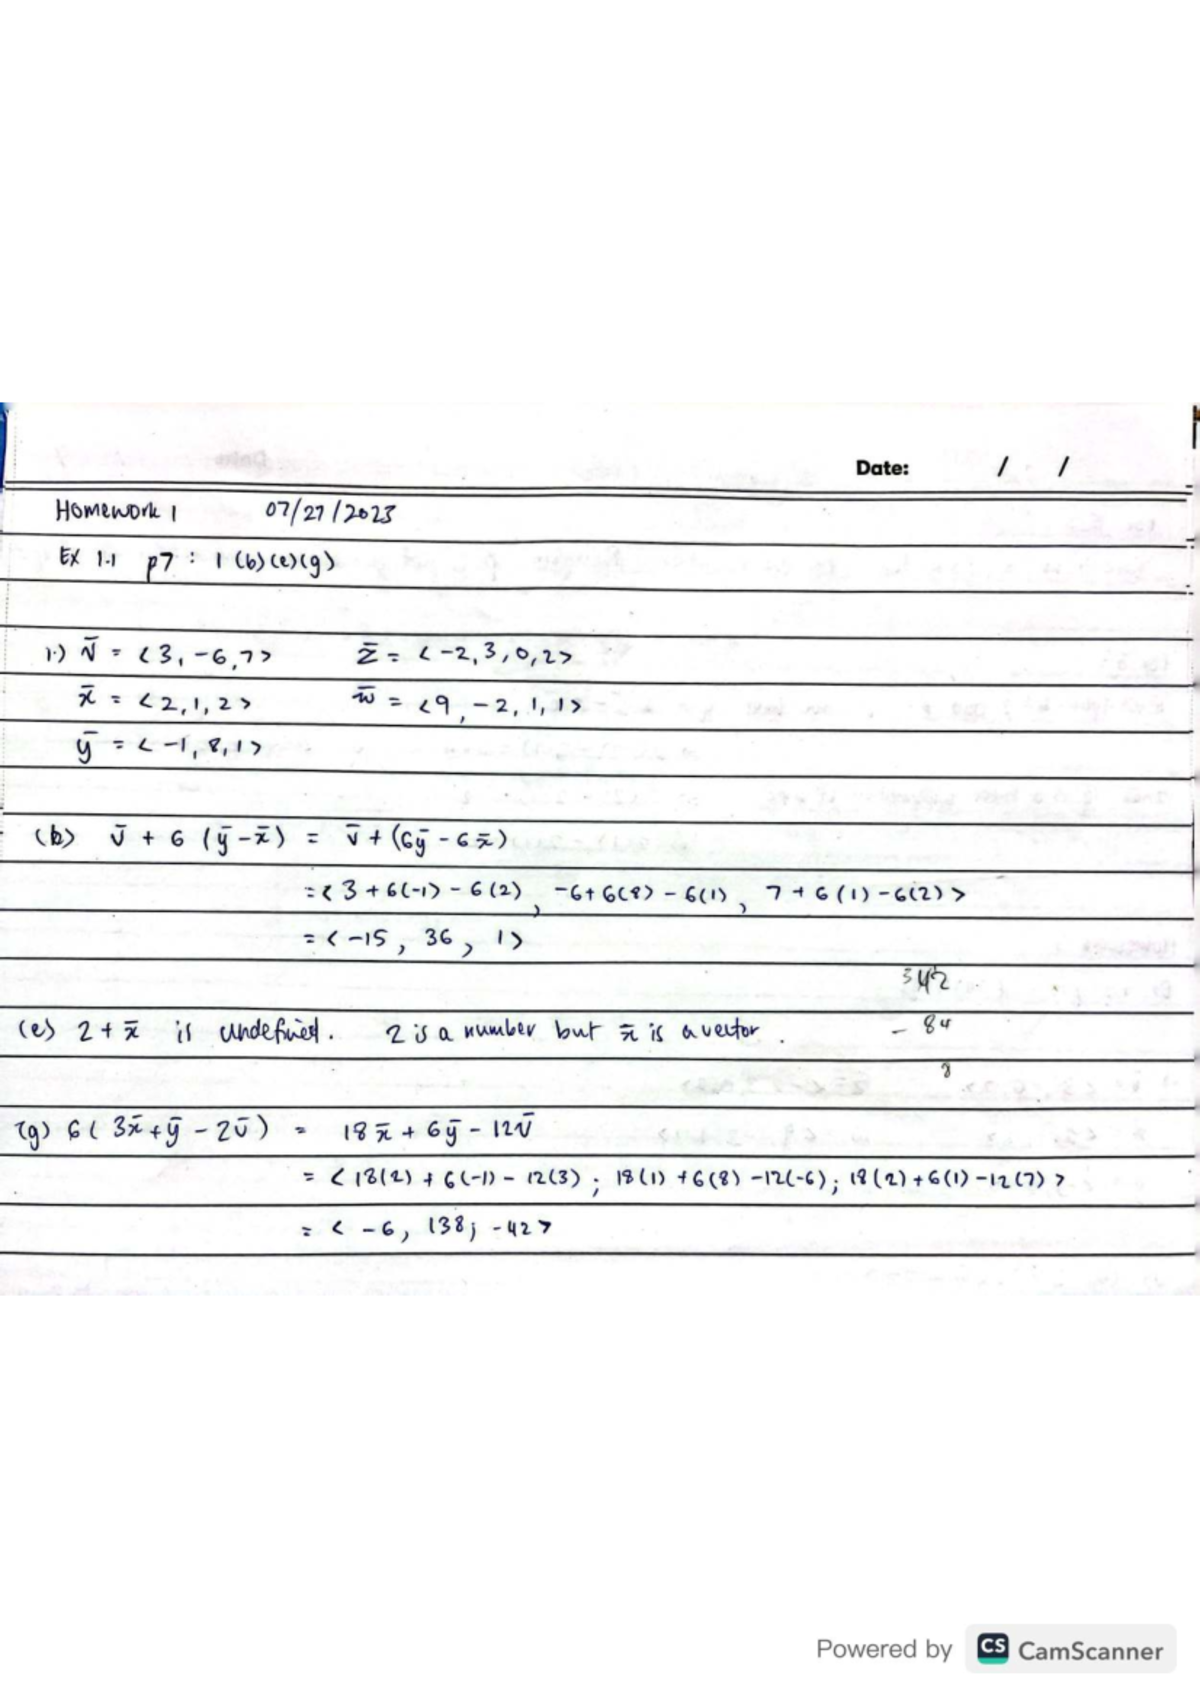 Date: / /
Homework 1 07/27/2023
Ex 1.1 p7 : 1 (b)(e)(g)
1.) v̄ = <3, -6, 7> z̄ = <-2, 3, 0, 2>
x̄ = <2, 1, 2> w̄ = <9, -2, 1, 1>
ȳ = <-1, 8, 1>
(b) v̄ + 6 (ȳ - x̄) = v̄ + (6ȳ - 6x̄)
= <3 + 6(-1) - 6(2), -6 + 6(8) - 6(1), 7 + 6(1) - 6(2)>
= <-15, 36, 1>
342
(e) 2 + x̄ is undefined. 2 is a number but x̄ is a vector.
- 84
8
(g) 6( 3x̄ + ȳ - 2v̄) = 18x̄ + 6ȳ - 12v̄
= <18(2) + 6(-1) - 12(3); 18(1) + 6(8) - 12(-6); 18(2) + 6(1) - 12(7)>
= < -6, 138; -42>
Powered by CS CamScanner